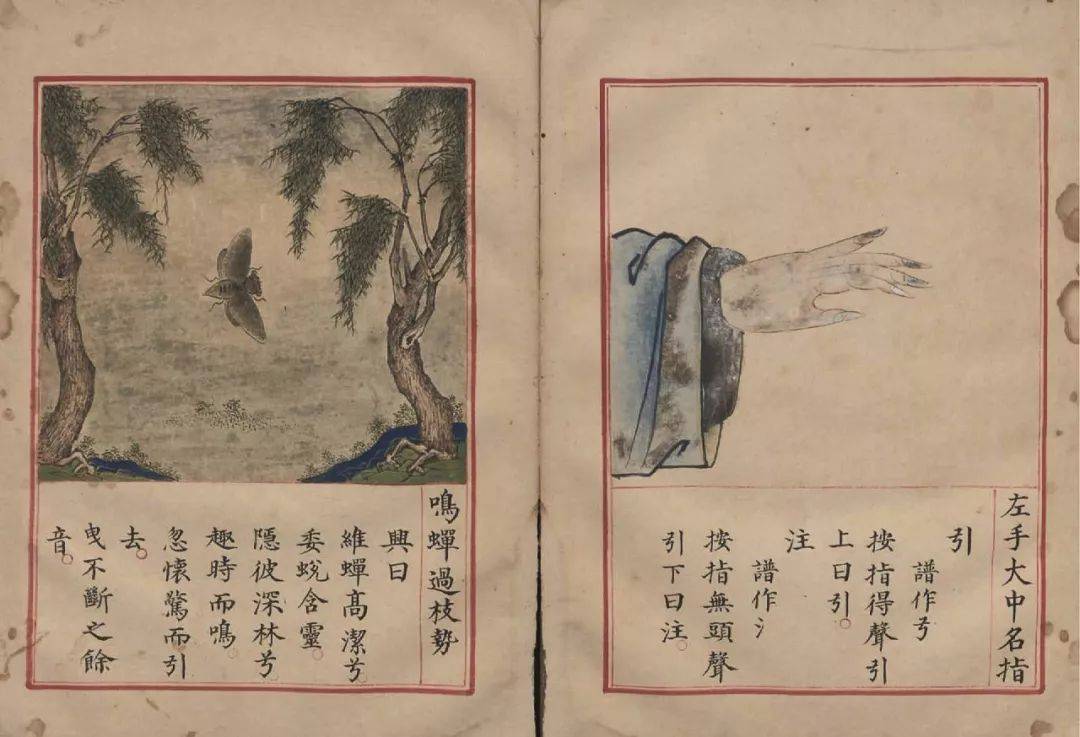 左手大中名指
引
譜作
按指得聲引
上曰引。
注
譜作氵
按指無頭聲
引下曰注。
鳴蟬過枝勢
興曰
維蟬髙潔兮
委蛻含靈。
隱彼深林兮
趣時而鳴。
忽懷驚而引
去。
曳不斷之餘
音。